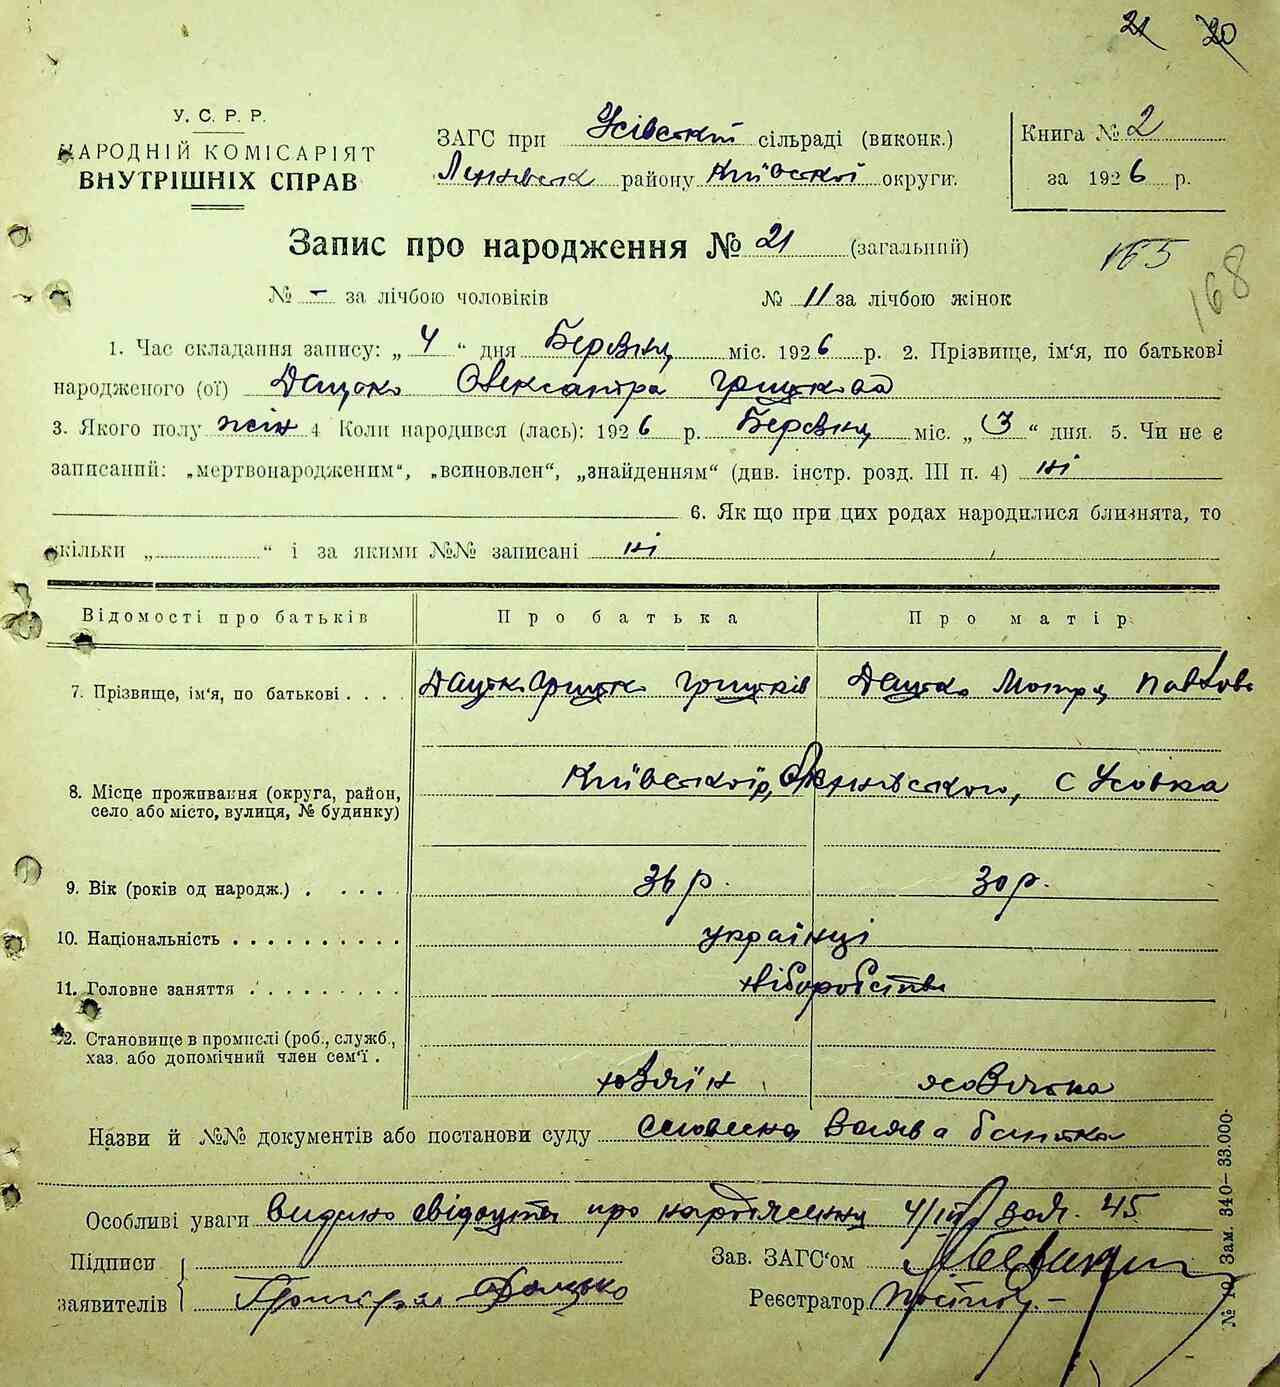 21 20
У. С. Р. Р.
НАРОДНІЙ КОМІСАРІЯТ
ВНУТРІШНІХ СПРАВ
ЗАГС при Усівській сільраді (виконк.)
району Київської округи.
Книга № 2
за 1926 р.
Запис про народження № 21 (загальний)
165
168
№ - за лічбою чоловіків № 11 за лічбою жінок
1. Час складання запису: „ 4 “ дня Березня міс. 1926 р. 2. Прізвище, ім'я, по батькові
народженого (ої) Дацько Олександра Грицькова
3. Якого полу жін 4 Коли народився (лась): 1926 р. Березня міс. „ 3 “ дня. 5. Чи не є
записаний: „мертвонародженим“, „всиновлен“, „знайденням“ (див. інстр. розд. III п. 4) ні
6. Як що при цих родах народилися близнята, то
скільки „ “ і за якими №№ записані ні
Відомості про батьків Про батька Про матір
7. Прізвище, ім'я, по батькові . . . . Дацько Грицько Грицьків Дацько Мотря Павлова
8. Місце проживання (округа, район, село або місто, вулиця, № будинку) Київської, с Усовка
9. Вік (років од народж.) . . . . . 36 р. 30 р.
10. Національність . . . . . . . . . . українці
11. Головне заняття . . . . . . . . . хліборобство
12. Становище в промислі (роб., служб., хаз. або допомічний член сем'ї . хозяїн хозяйка
Назви й №№ документів або постанови суду словесна заява батька
Особливі уваги видано свідоцтво про народження 4/III зая. 45
Підписи
заявителів Григорий Дацько
Зав. ЗАГС'ом
Реєстратор
№ 10 Зам. 340—33.000.